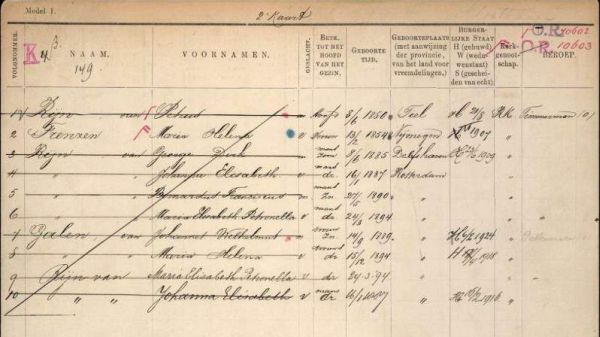 Model 1.
2e Kaart
O.R. 10602
O.R. 10603
VOLGNOMMER.
K 4 B.
149
NAAM.
VOORNAMEN.
GESLACHT.
BETR. TOT HET HOOFD VAN HET GEZIN.
GEBOORTE TIJD.
GEBOORTEPLAATS (met aanwijzing der provincie, van het land voor vreemdelingen.)
BURGERLIJKE STAAT H (gehuwd) W (weduwenstaat) S (gescheiden van echt).
Kerkgenootschap.
BEROEP.
1 Rijn van Hoofd 3/6 1850 Tiel RK Timmerman
2 Frenzen Maria Helena v Vrouw 13/12 1854 Nijmegen 1907 "
3 Rijn van George Dirk Zoon 8/6 1885 Delfshaven 1909 "
4 " " Johanna Elisabeth v dr 16/1 1887 Rotterdam "
5 " " Bernardus Franciscus Zn 27/5 1890 " "
6 " " Maria Elisabeth Petronella v dr 24/3 1894 " "
7 Galen van Johannes Wilhelmus Zn 14/9 1889 " 1924 "
8 " " Maria Helena v dr 15/12 1894 " H 1918 "
9 Rijn van Maria Elisabeth Petronella v dr 24-3-94 " "
10 " " Johanna Elisabeth v dr 16/1 1887 " 1916 "